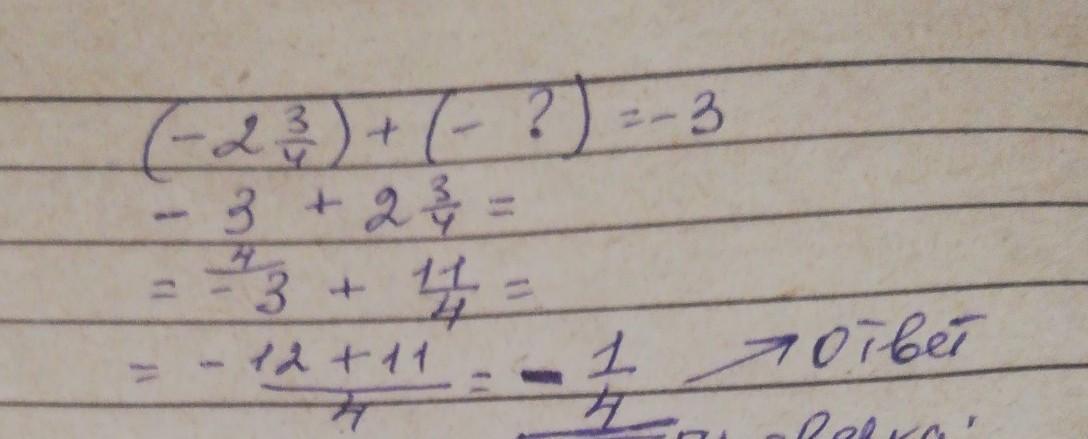 (- 2 3/4) + (- ?) = - 3
- 3 + 2 3/4 =
= - 3 4 + 11/4 =
= - 12 + 11 / 4 = - 1/4 → ответ